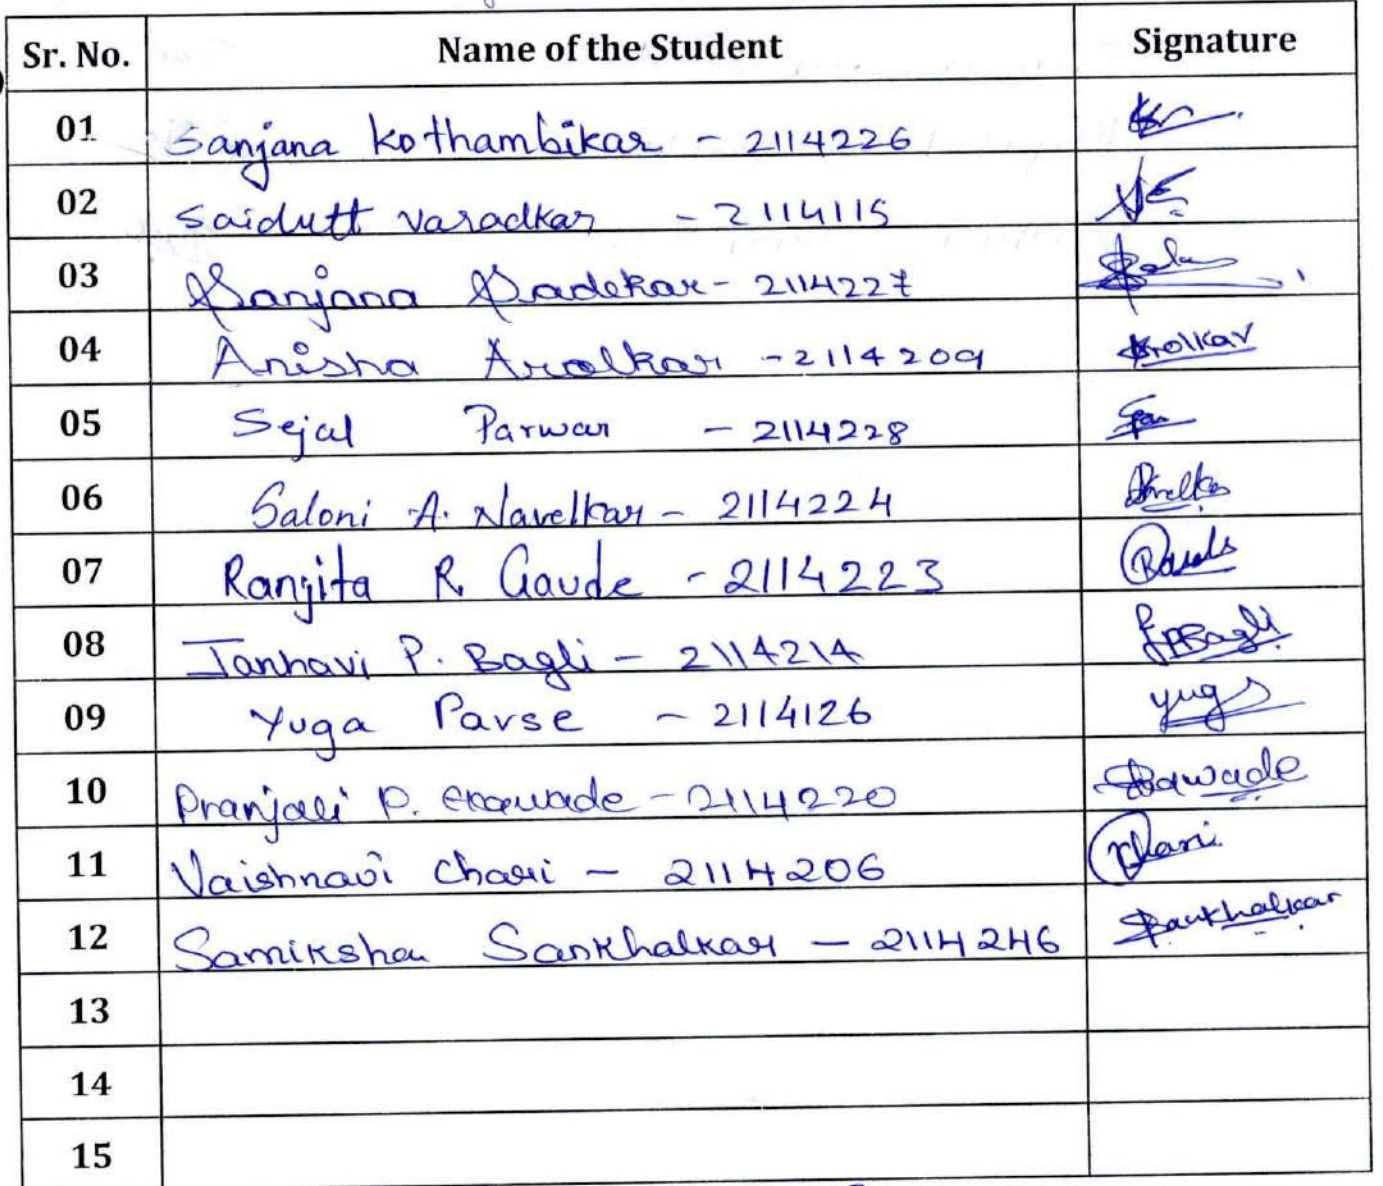 Sr. No. Name of the Student Signature
01 Sanjana Kothambikar - 2114226
02 Saidutt Varadkar - 2114115
03 Sanjana Padekar - 2114227
04 Anisha Arolkar - 2114209 Arolkar
05 Sejal Parwar - 2114228
06 Saloni A. Navelkar - 2114224
07 Ranjita R Gaude - 2114223
08 Janhavi P. Bagli - 2114214 JPBagli
09 Yuga Parse - 2114126 Yuga
10 Pranjali P. - 2114220
11 Vaishnavi Chari - 2114206 VChari
12 Samiksha Sankhalkar - 2114246 Sankhalkar
13
14
15